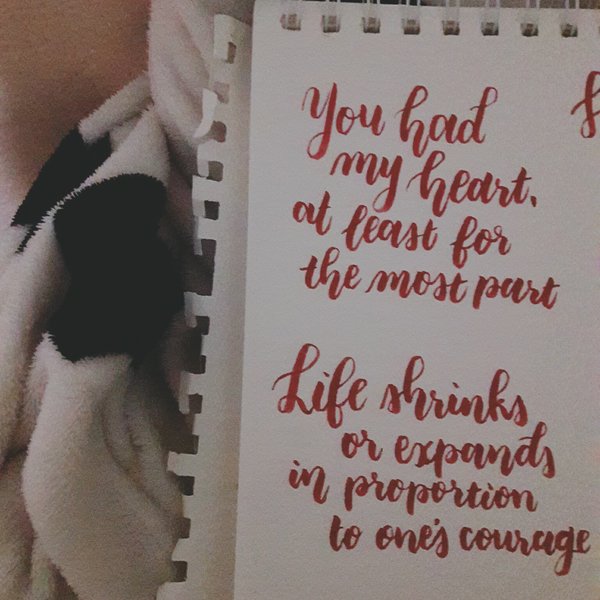 You had
my heart,
at least for
the most part
Life shrinks
or expands
in proportion
to one's courage